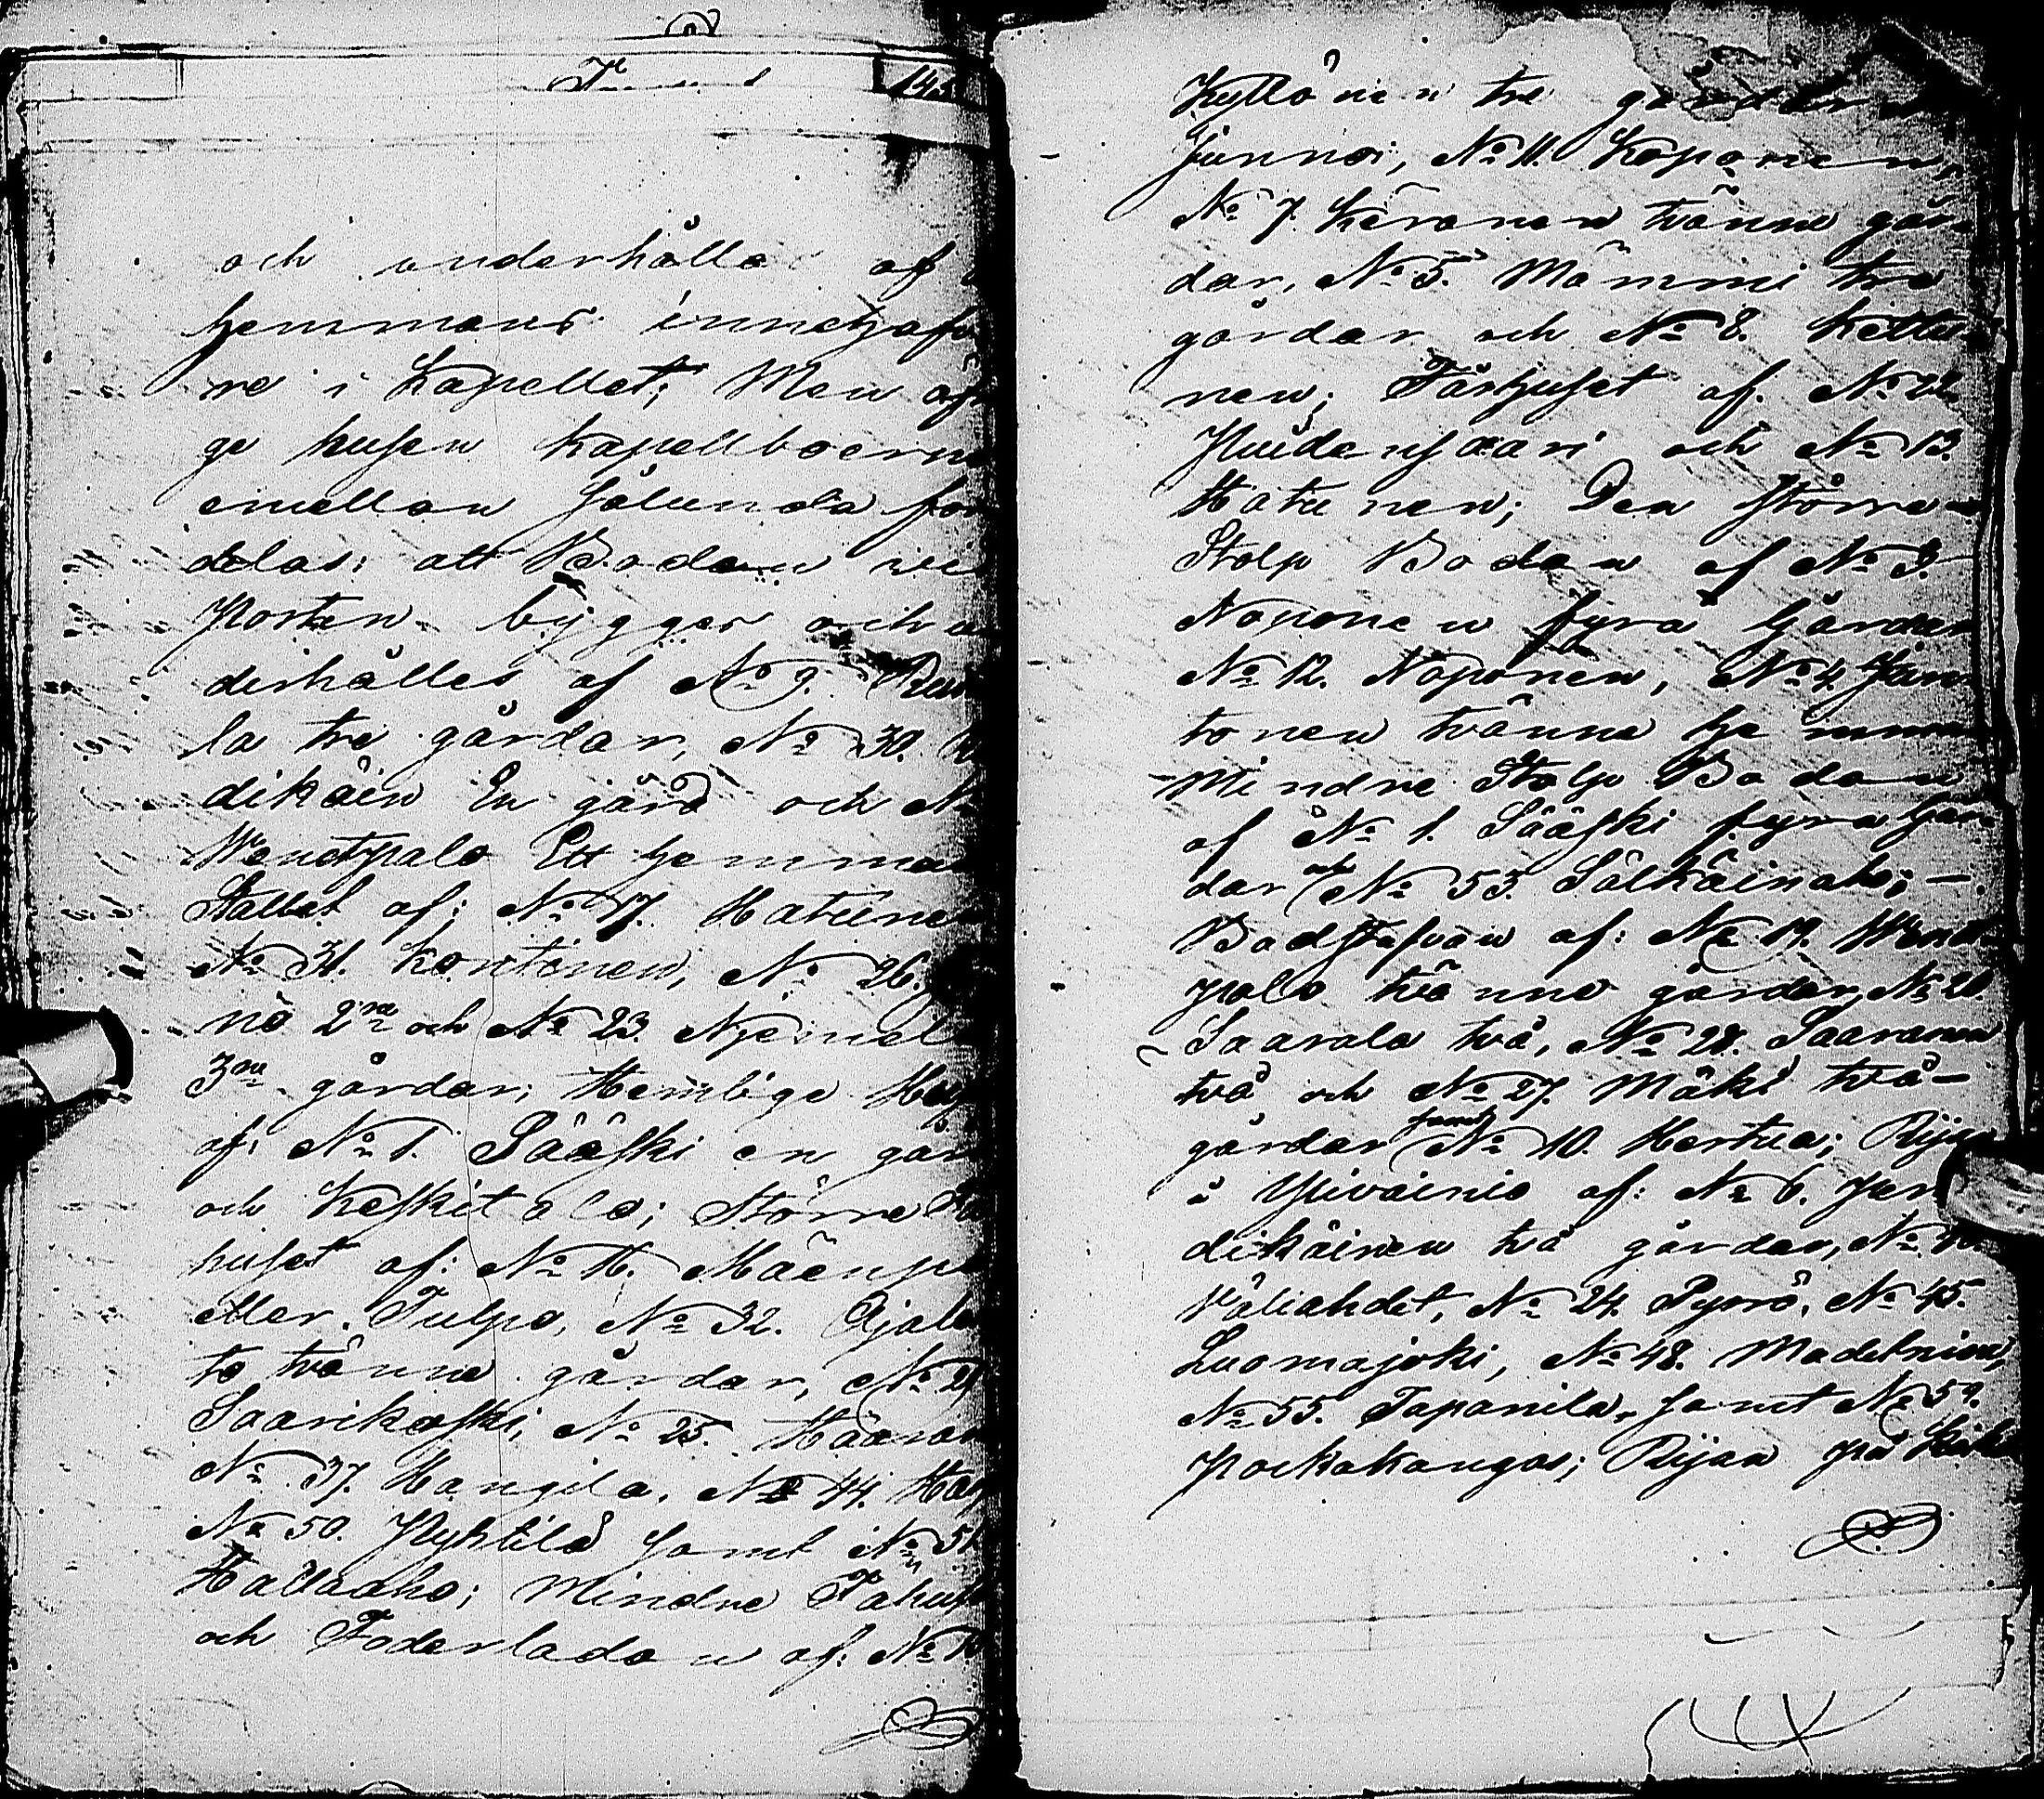 145
och underhålles af
hemmans innehafva
re i Kapellet; Men öfri
ge husen kapellboerne
emellan sålunda för
delas: att Boden vid
Porten bygges och un
derhålles af No 9.
la tre gårdar, No 30.
dikäin En gård och No
Wenetpalo Ett hemman
Stallet af: No 17. Hatune
No 31. Kontinen, No 26.
nö 2ne och No 23. Niemel
3ne gårdar; Hemlige Hus
af: No 1. Sääski en går
och Keskitalo; Större Fä
huset af: No 16. Mäenpä
eller Tulpo, No 32. Ajale
to tvänne gårdar, No 29
Saarikoski, No 25. Määrä
No 37. Kangila, No 44.
No 50. Pyhtilä samt No 51
Hallaaho; Mindre Fähus
och Foderladan af: No 1
Kyllönen tre gårdar
Junnoi, No 11. Koponen,
No 7. Keränen tvänne går
dar, No 5. Mämmi tre
gårdar och No 8. Kettu
nen; Fårhuset af. No 22
Huidensaari och No 13.
Hatunen; Den större
Stolp Boden af No 3.
Noponen fyra Gårdar
No 12. Noponen, No 4. Jun
tonen tvänne hemman
Mindre Stolp Boden
af No 1. Sääski fyra går
dar och No 53. Sälkäinaho; —
Badstufvan af: No 19. Wenet
palo tvänne gårdar, No 20.
Saarela två, No 28. Saaranen
två och No 27. Mäki två
gårdar samt No 10. Hertua; Rijan
i Ylivainio af: No 6. Per
dikäinen två gårdar, No 40
Väliahdet, No 24. Pyörö, No 45.
Luomajoki, No 48. Madetniemi,
No 55. Tapanila, samt No 59.
Pockakangas; Rijan på